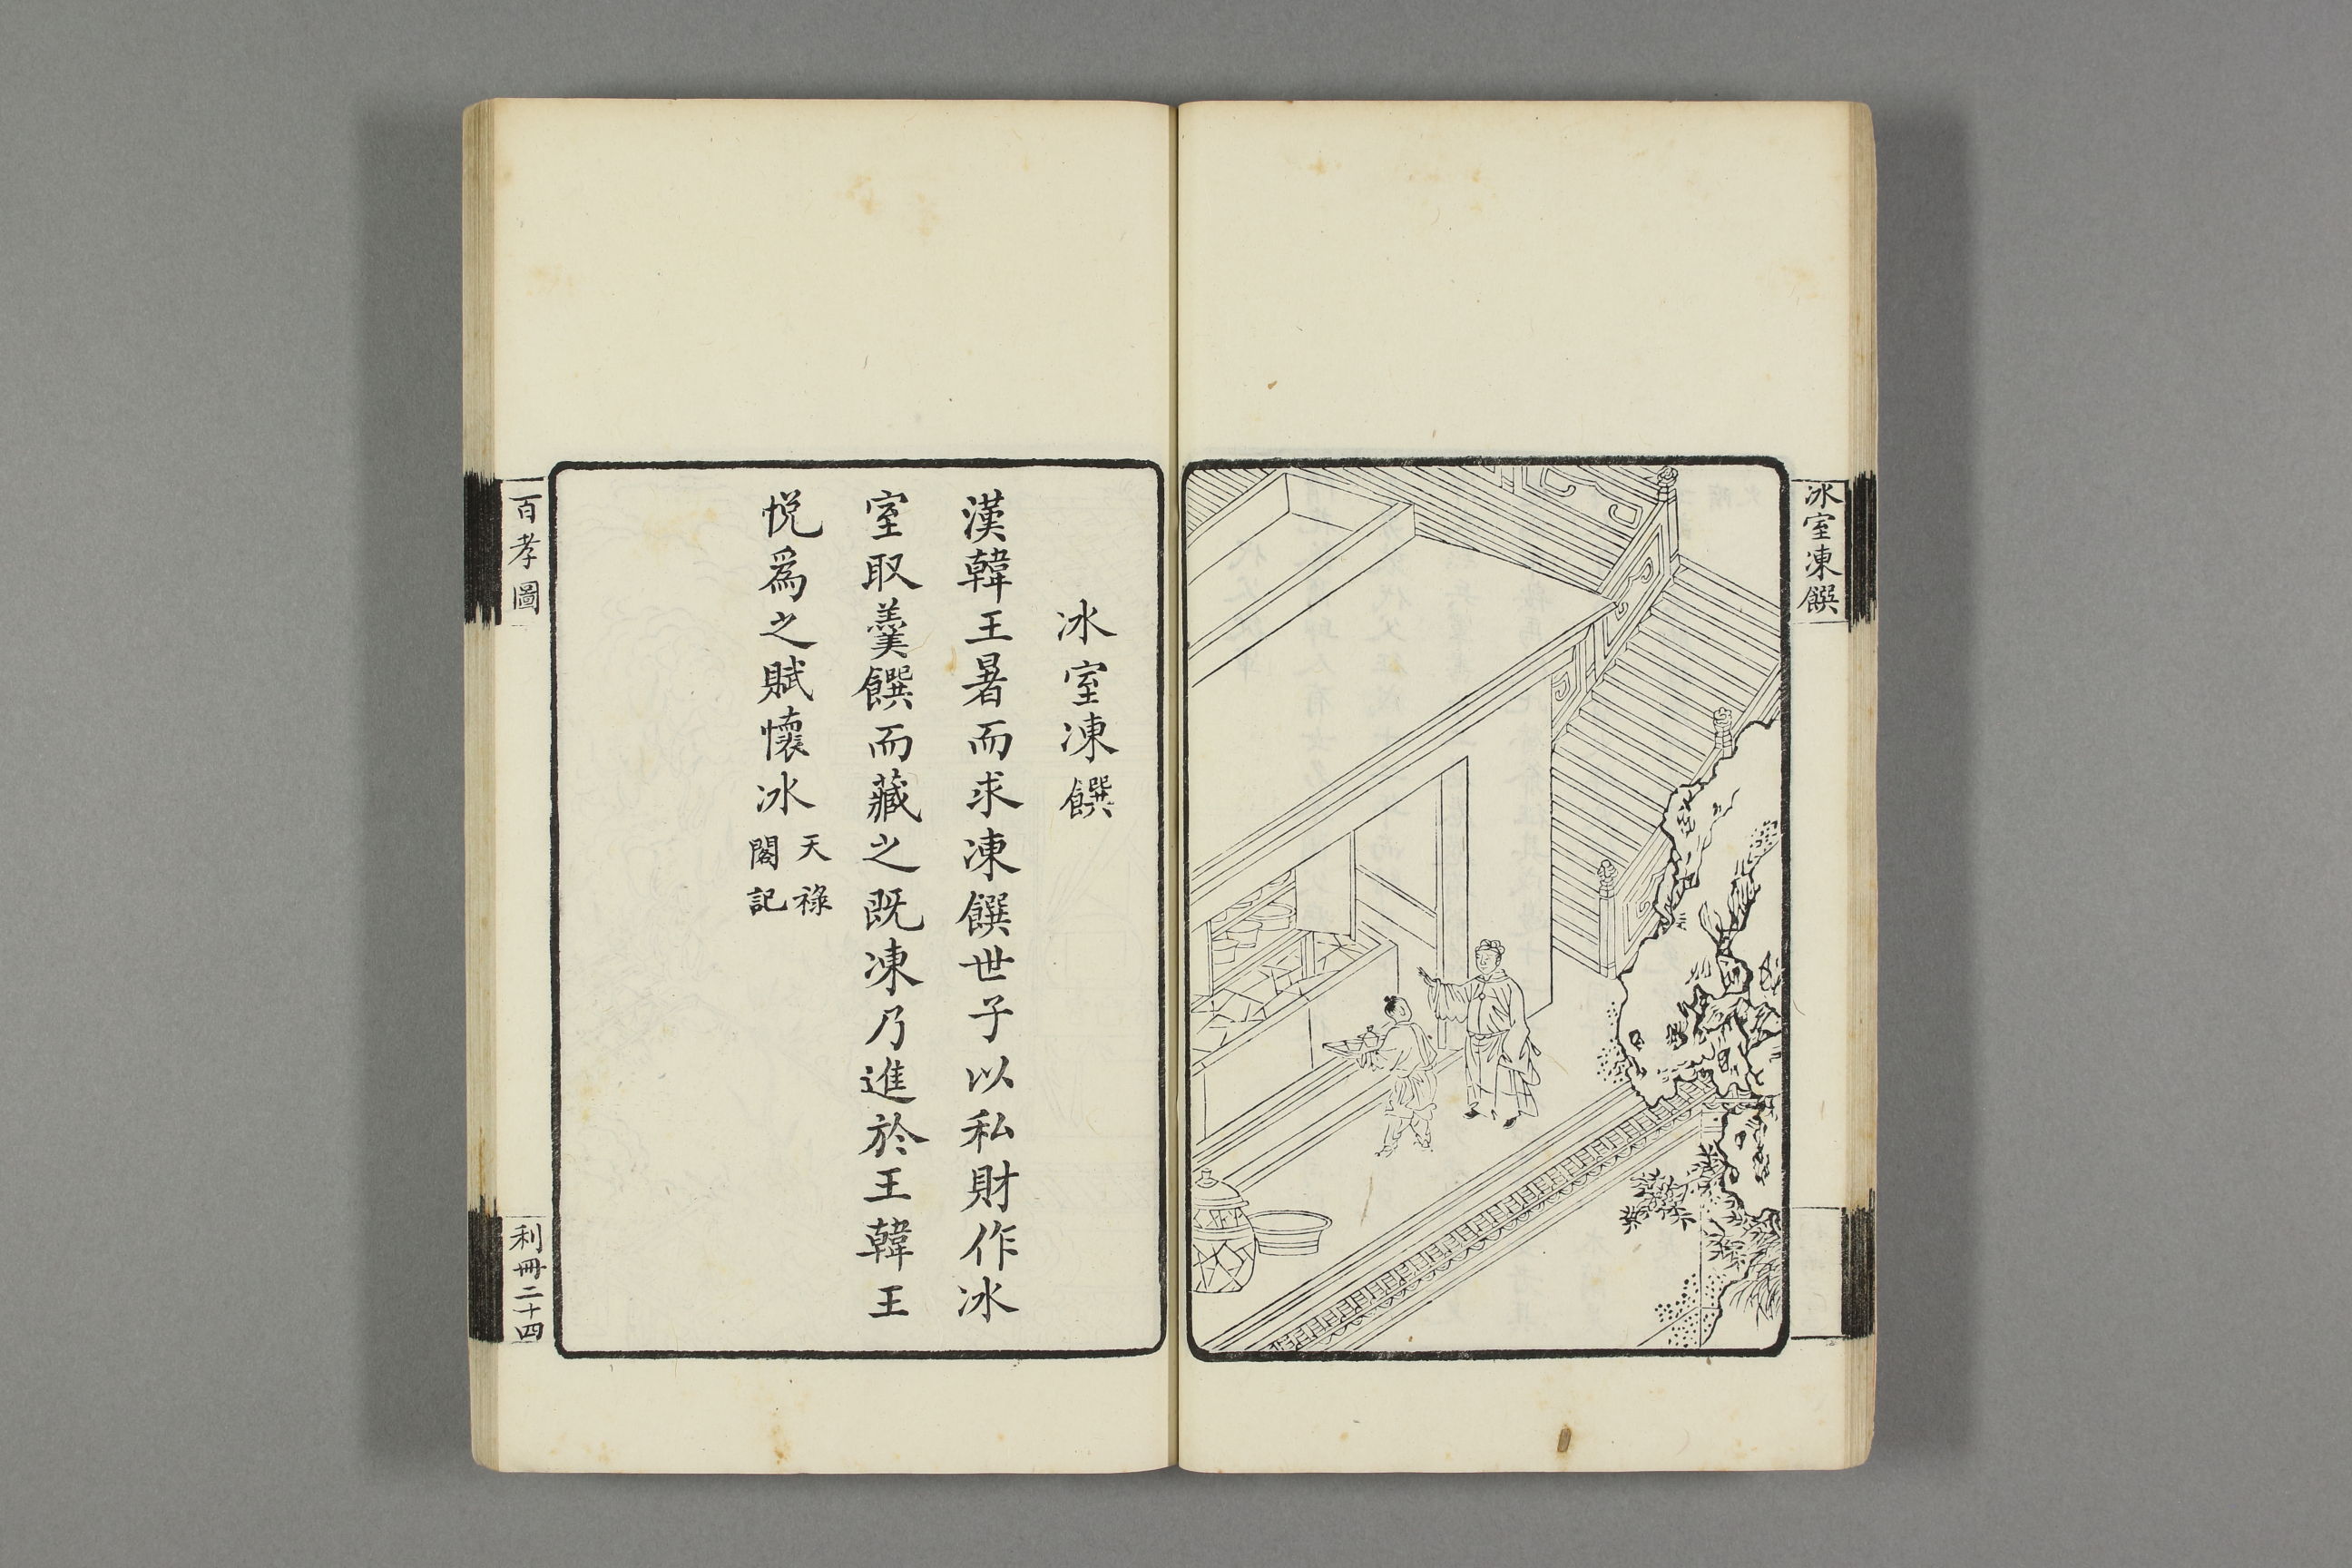 冰室凍饌
冰室凍饌
漢韓王暑而求凍饌世子以私財作冰
室取羹饌而藏之既凍乃進於王韓王
悅爲之賦懷冰
天祿
閣記
百孝圖
利冊二十四